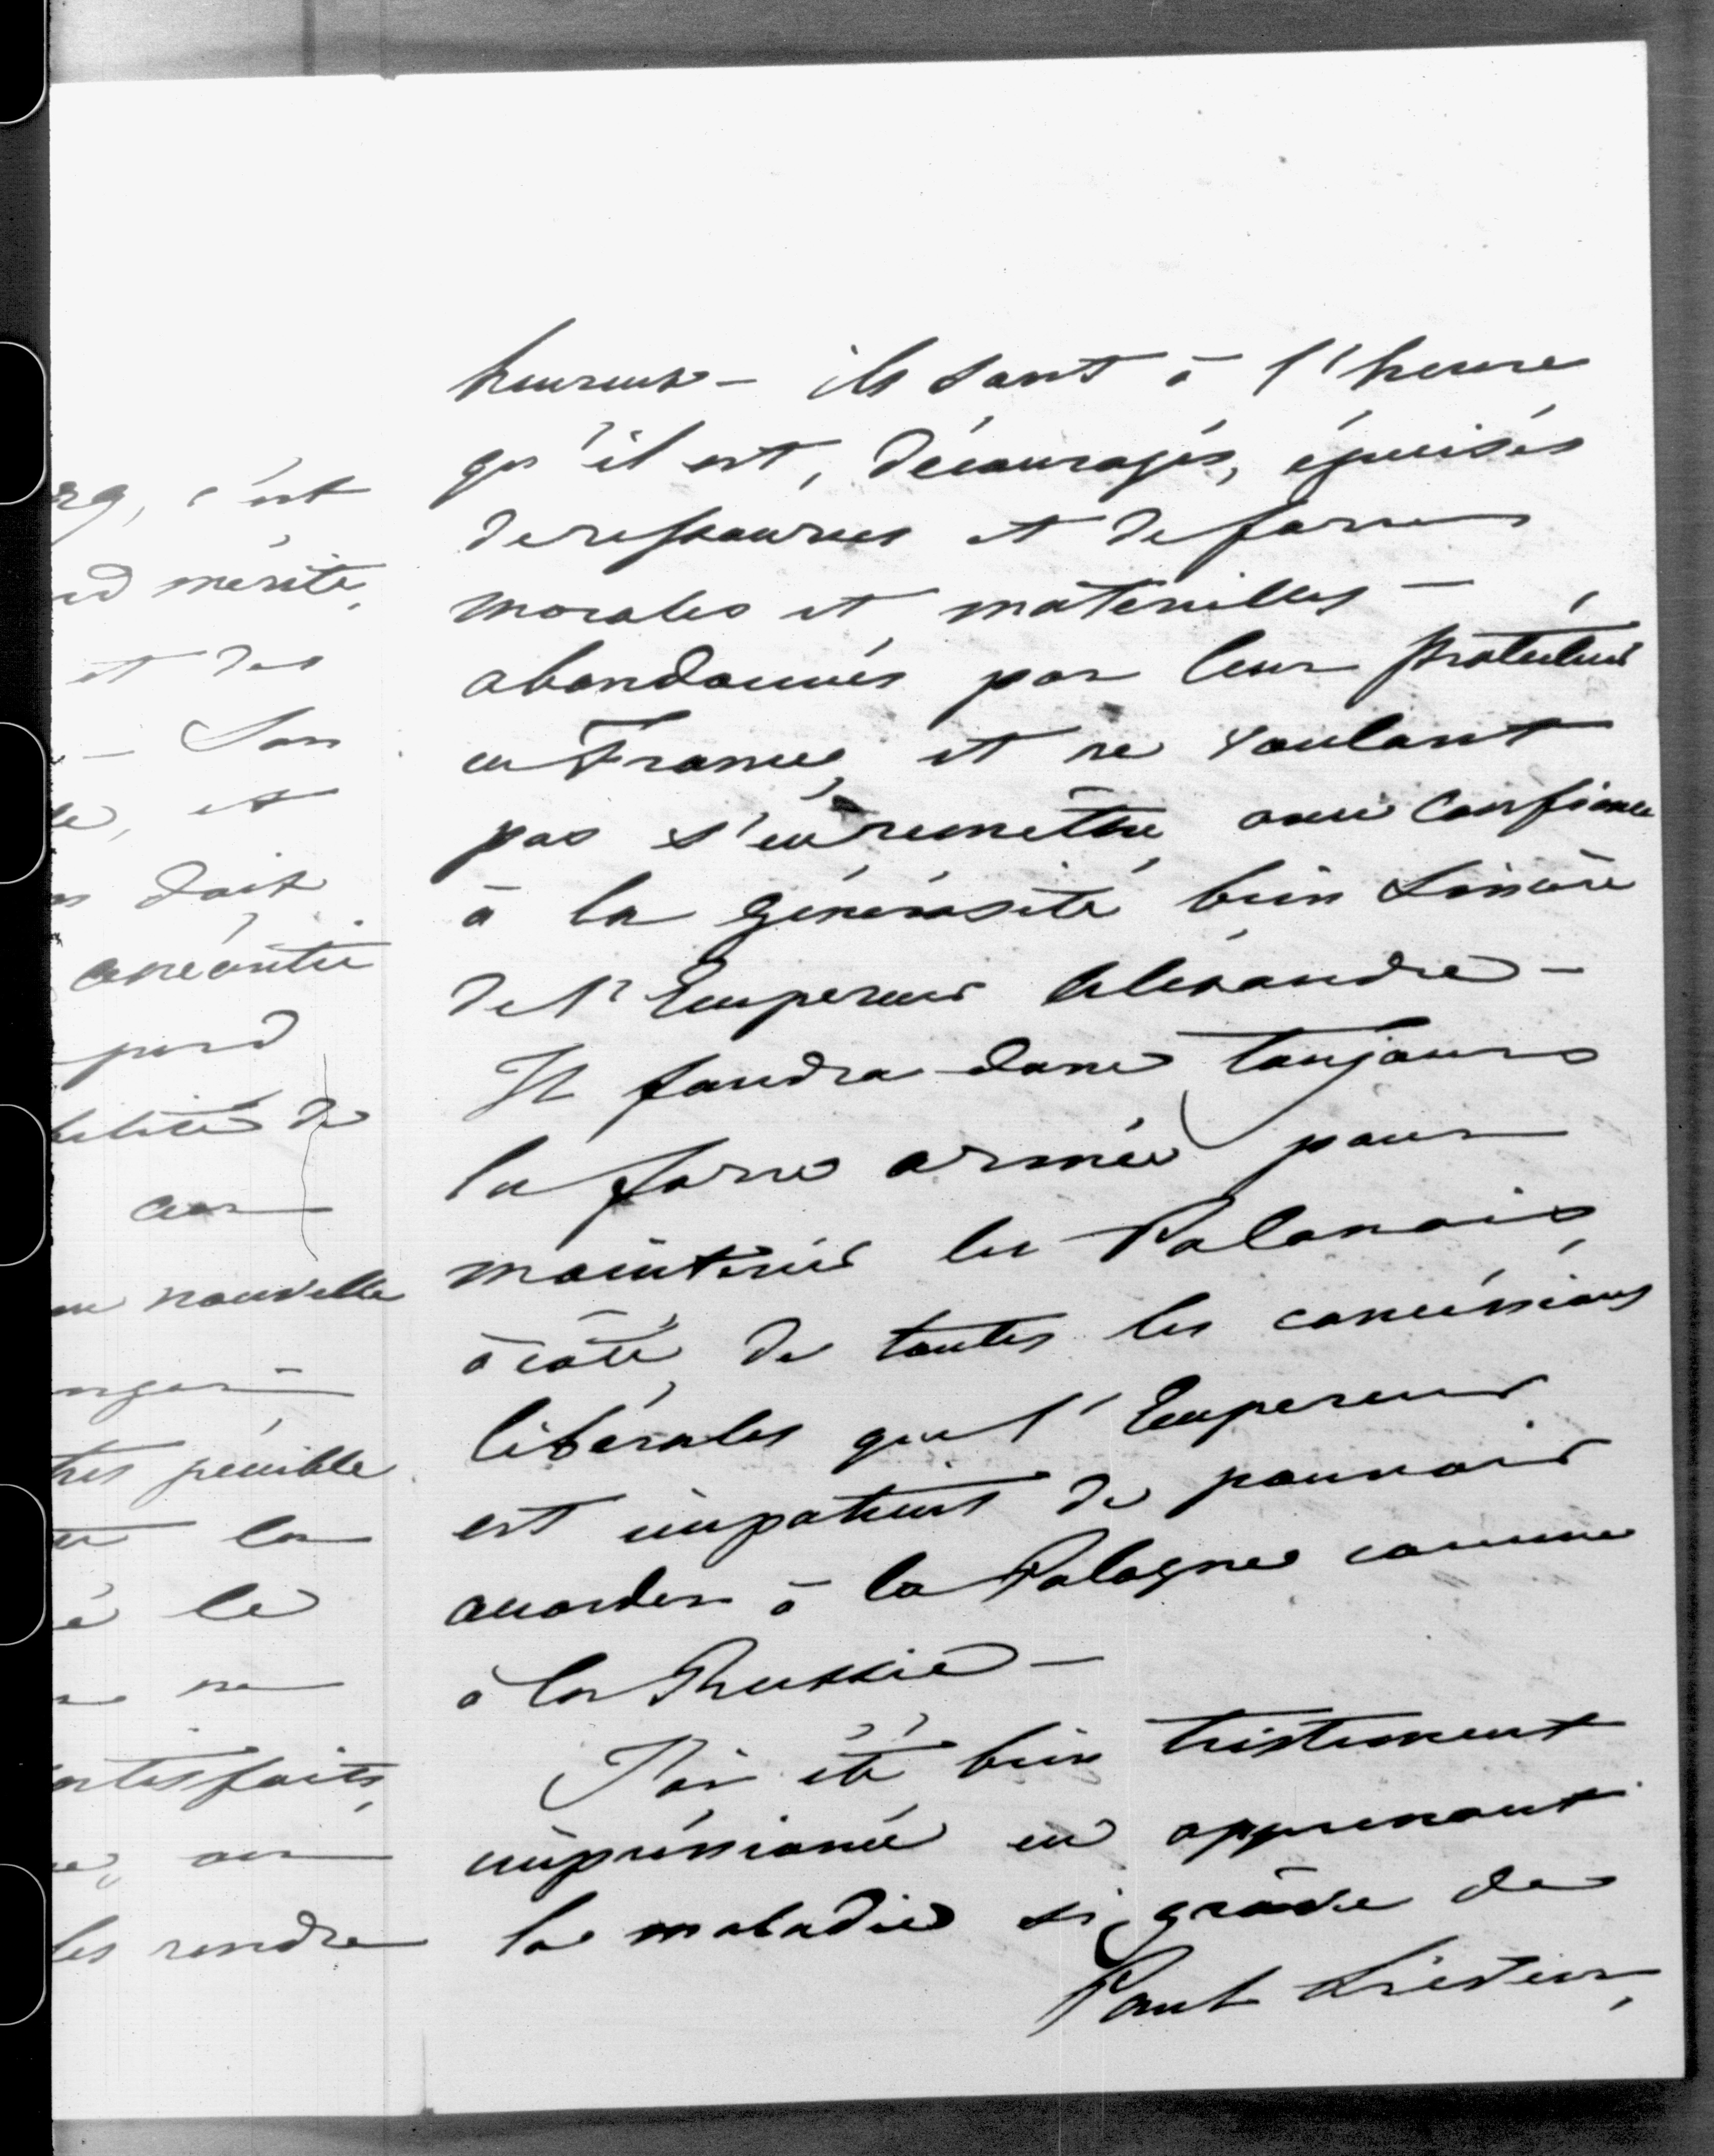 rg, c'est
nd mérite,
et des
— Son
le, et
doit
anéantie
perd
bilité de
car
ne nouvelle
nger —
très pénible
la
é le
ne
satisfaits,
ou
les rendre
heureux — ils sont à l'heure
qu'il est, découragés, épuisés
de ressources et de forces
morales et matérielles —
abandonnés par leur protecteurs
en France, et ne voulant
pas s'en remettre avec confiance
à la générosité bien sincère
de l'Empereur Alexandre —
Il faudra donc toujours
la force armée pour
maintenir les Polonais,
à côté, de toutes les concessions
libérales que l'Empereur
est impatient de pouvoir
accorder à la Pologne comme
à la Russie —
J'ai été bien tristement
impressionné en apprenant
la maladie si grave de
Paul